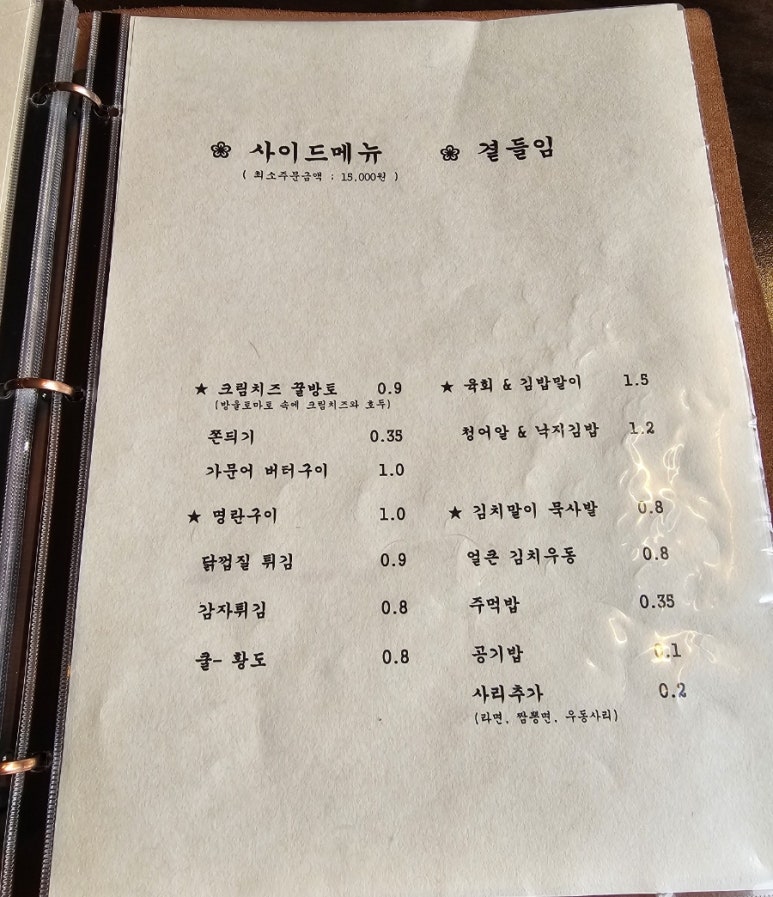 ❀ 사이드메뉴
( 최소주문금액 : 15,000원 )
★ 크림치즈 꿀방토 0.9
(방울토마토 속에 크림치즈와 호두)
쫀듸기 0.35
가문어 버터구이 1.0
★ 명란구이 1.0
닭껍질 튀김 0.9
감자튀김 0.8
쿨- 황도 0.8
❀ 곁들임
★ 육회 & 김밥말이 1.5
청어알 & 낙지김밥 1.2
★ 김치말이 묵사발 0.8
얼큰 김치우동 0.8
주먹밥 0.35
공기밥 0.1
사리추가 0.2
(라면, 짬뽕면, 우동사리)